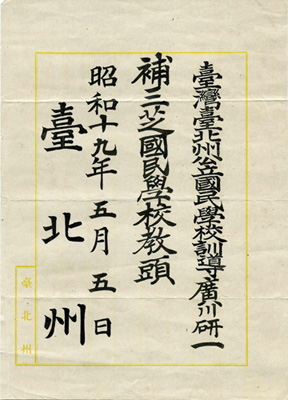 臺灣臺北州公立國民學校訓導廣川研一
補三芝國民學校教頭
昭和十九年五月五日
臺北州
臺北州